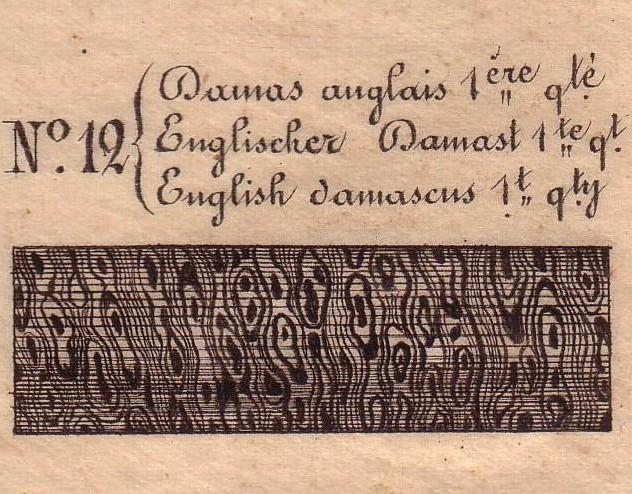 No. 12
Damas anglais 1ère qté
Englischer Damast 1te qt.
English damascus 1t qty